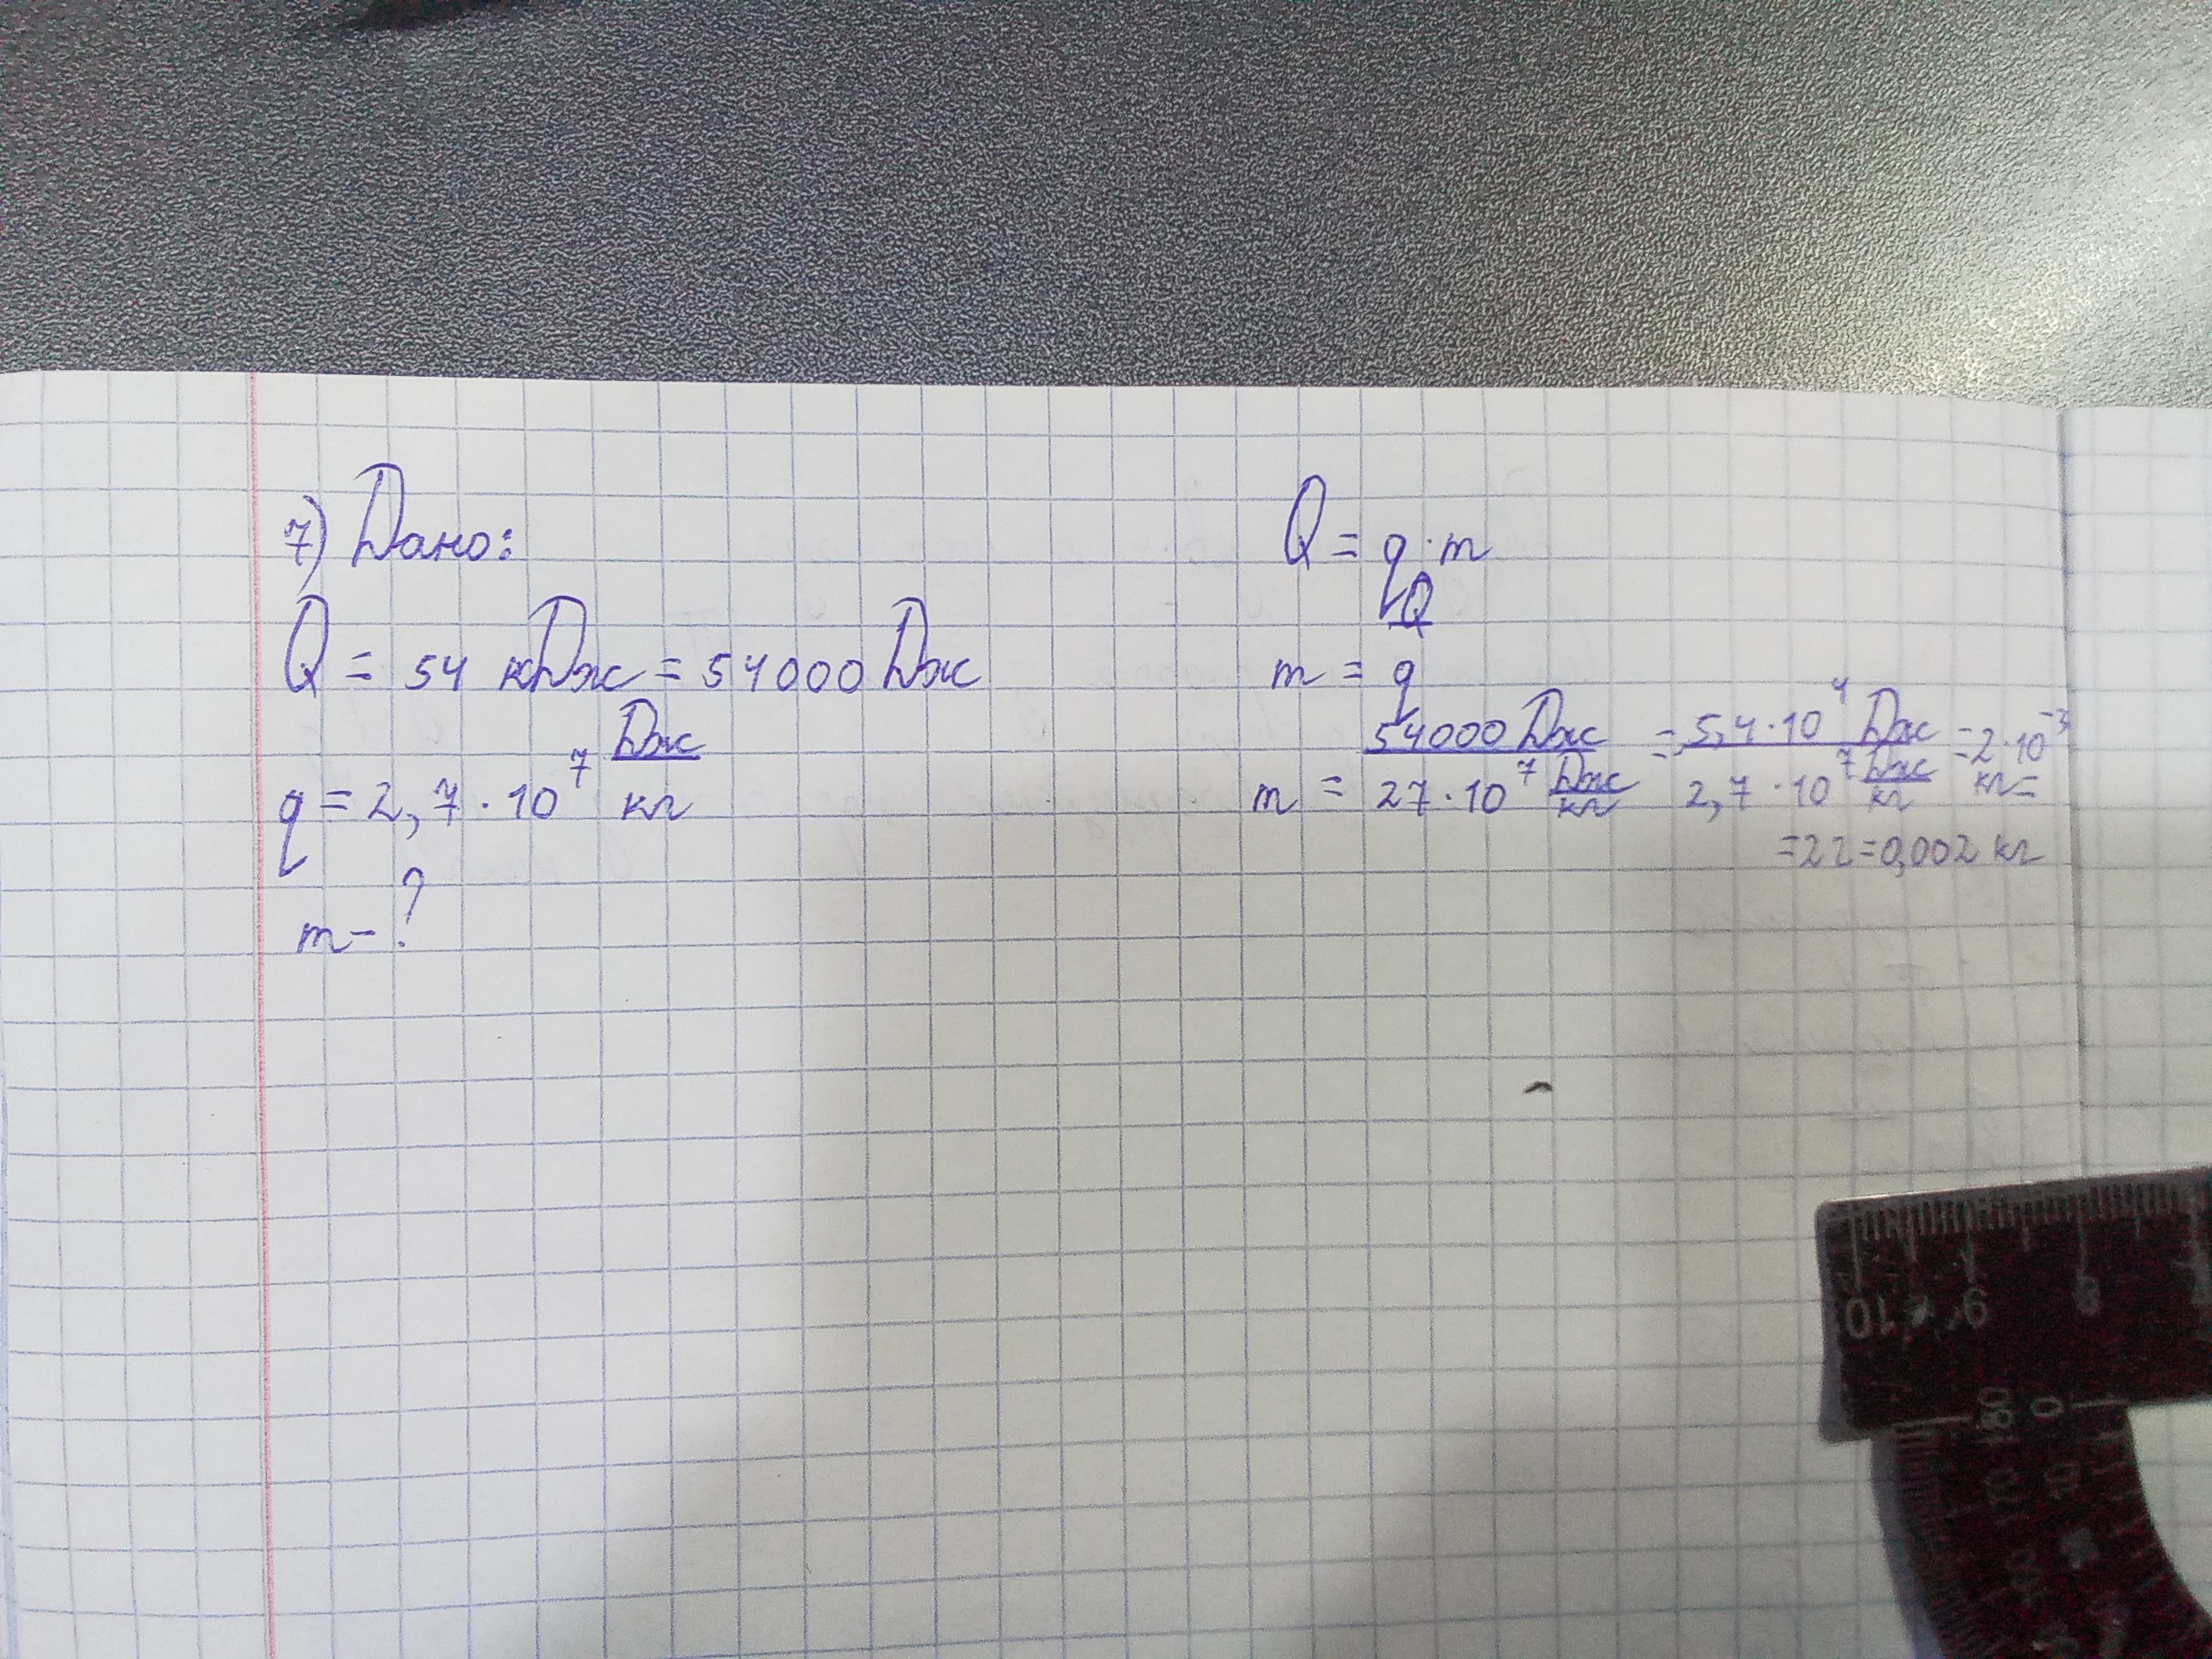 7) Дано:
Q = 54 кДж = 54000 Дж
q = 2,7 · 10⁷ Дж/кг
m - ?
Q = q · m
m = Q/q
m = 54000 Дж / 27 · 10⁷ Дж/кг = 5,4 · 10⁴ Дж / 2,7 · 10⁷ Дж/кг = 2 · 10⁻³ кг =
= 2 г = 0,002 кг
10 9 8
0